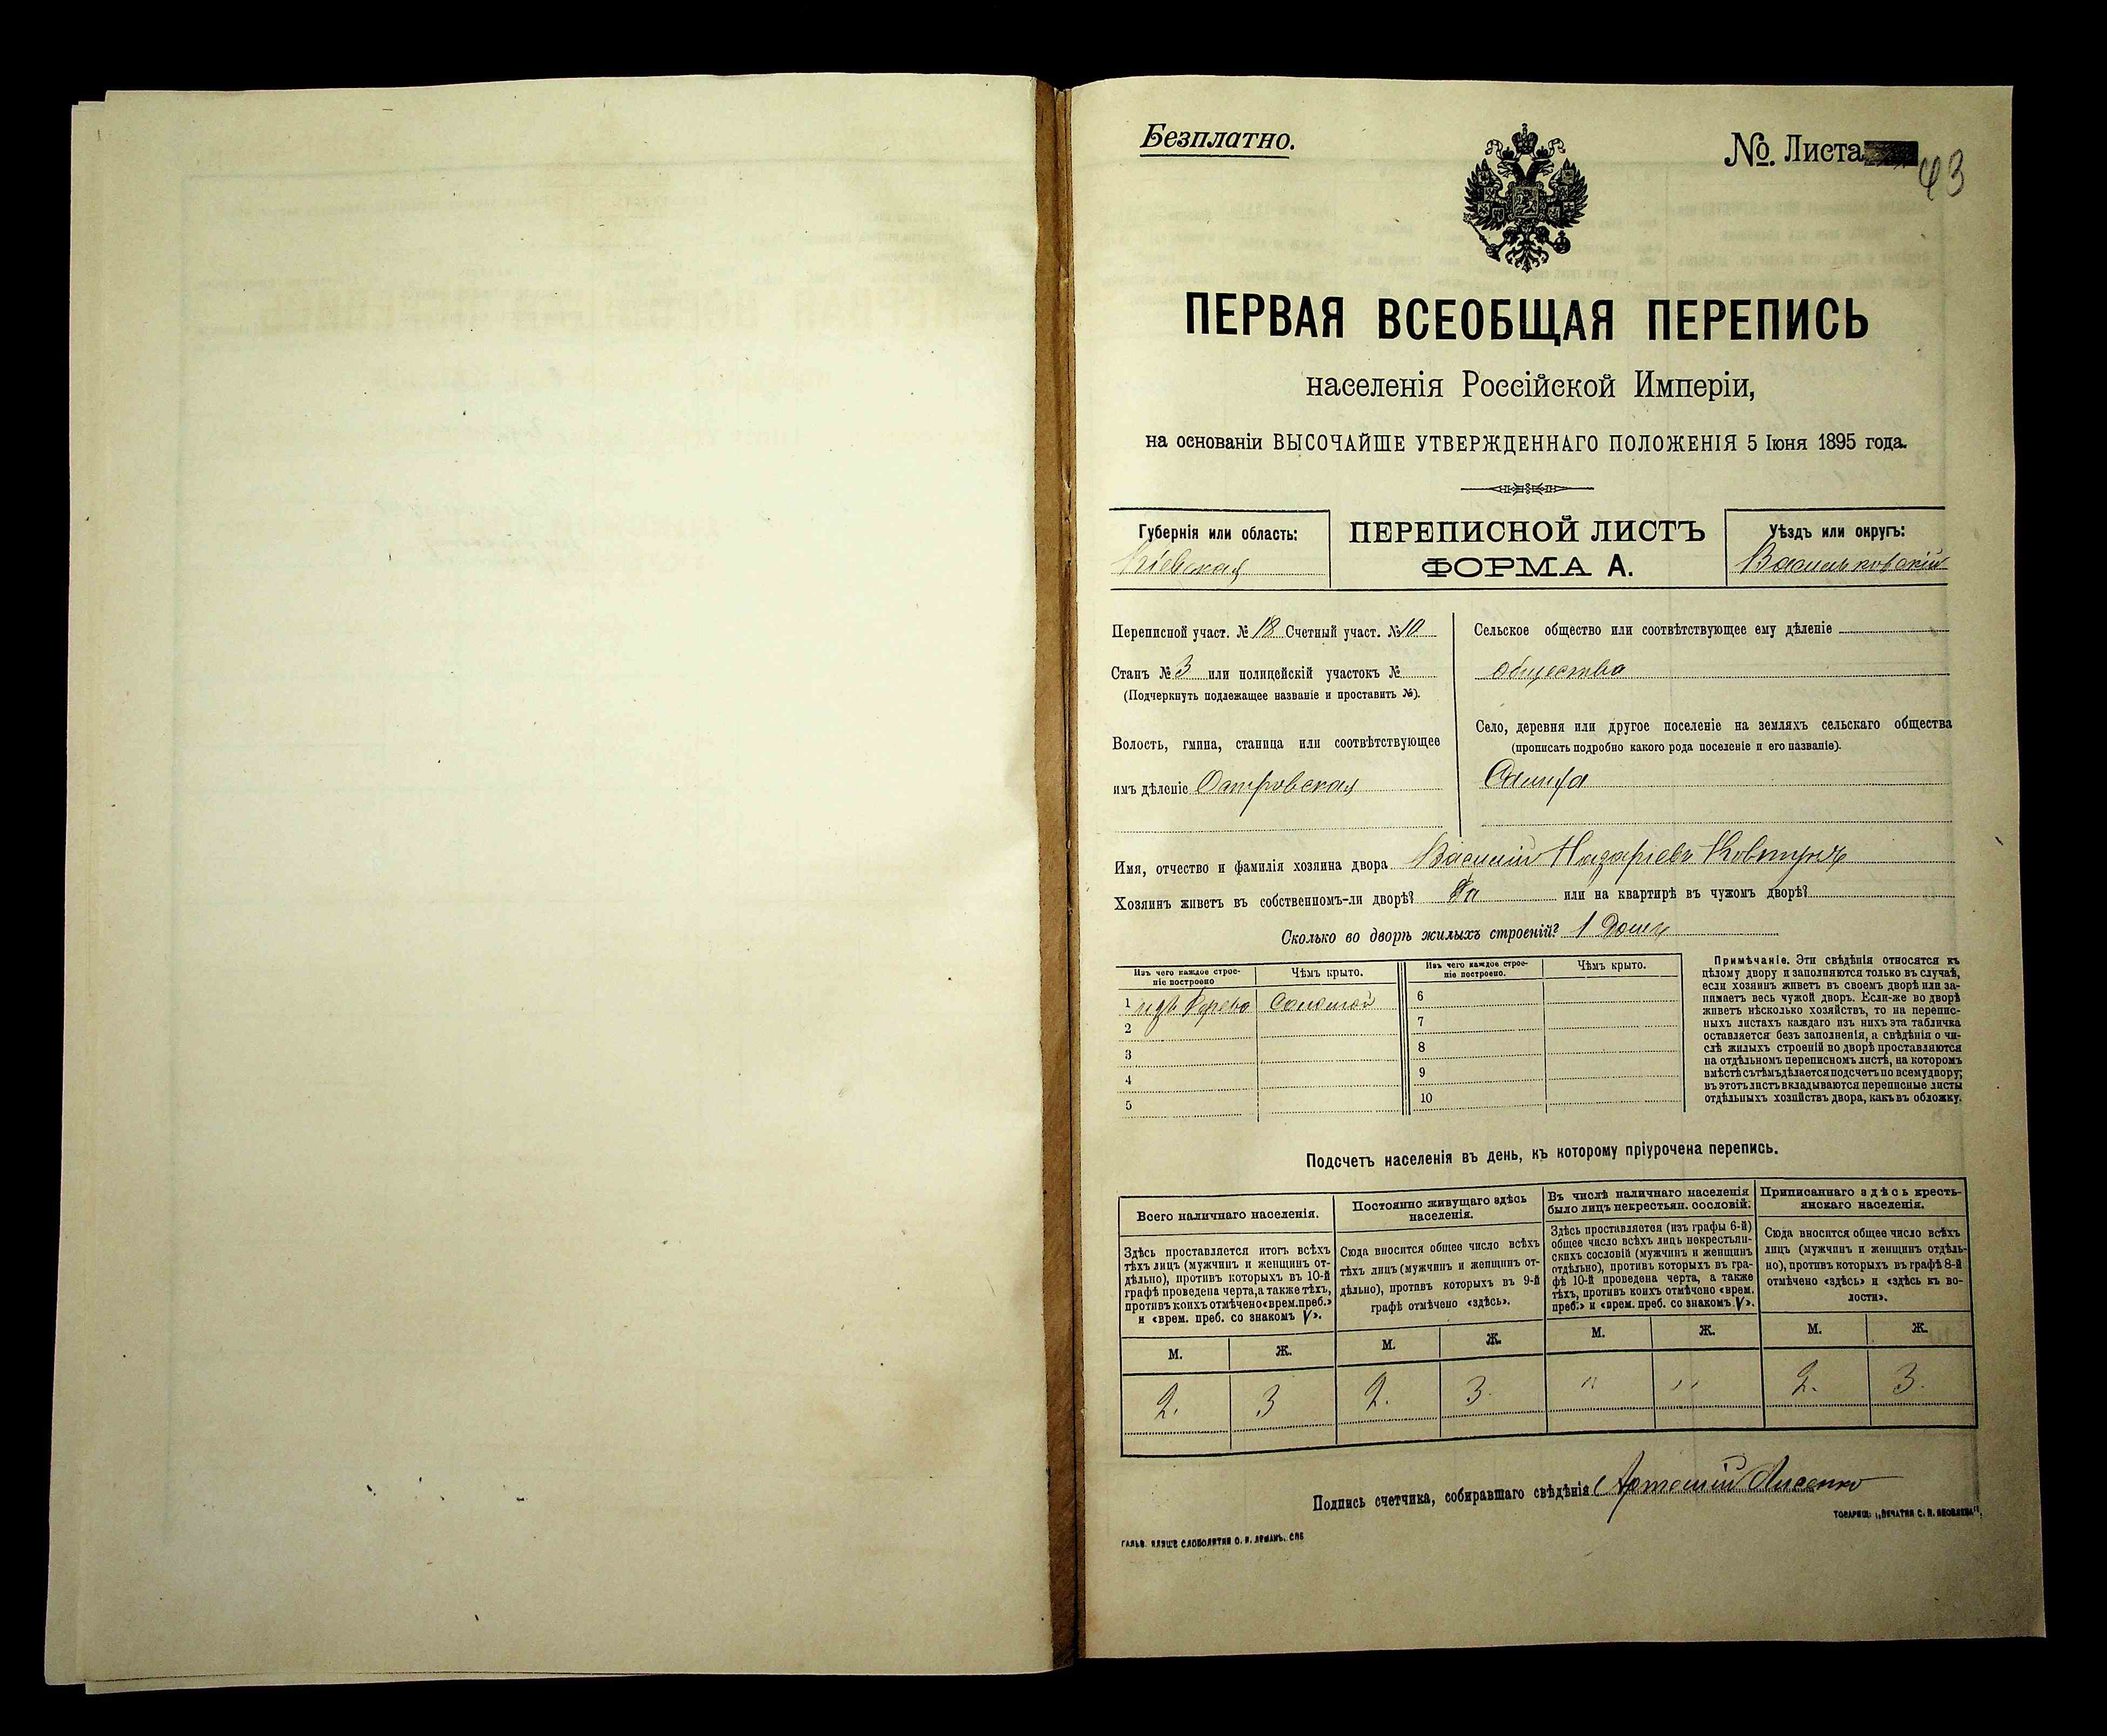 Безплатно.
№. Листа 43
ПЕРВАЯ ВСЕОБЩАЯ ПЕРЕПИСЬ
населенія Россійской Имперіи,
на основаніи ВЫСОЧАЙШЕ УТВЕРЖДЕННАГО ПОЛОЖЕНІЯ 5 Іюня 1895 года.
Губернія или область:
Кіевская
ПЕРЕПИСНОЙ ЛИСТЪ
ФОРМА А.
Уѣздъ или округъ:
Васильковскій
Переписной участ. № 18 Счетный участ. № 10
Станъ № 3 или полицейскій участокъ №
(Подчеркнуть подлежащее названіе и проставить №).
Волость, гмина, станица или соотвѣтствующее
имъ дѣленіе Островская
Сельское общество или соотвѣтствующее ему дѣленіе
общества
Село, деревня или другое поселеніе на земляхъ сельскаго общества
(прописать подробно какого рода поселеніе и его названіе).
Имя, отчество и фамилія хозяина двора Василій Назаріевъ Ковтунъ
Хозяинъ живетъ въ собственномъ-ли дворѣ? Да или на квартирѣ въ чужомъ дворѣ?
Сколько во дворѣ жилыхъ строеній? 1 Домъ
Изъ чего каждое строе-
ніе построено
Чѣмъ крыто.
Изъ чего каждое строе-
ніе построено.
Чѣмъ крыто.
1 изъ древа Соломой
2
3
4
5
6
7
8
9
10
Примѣчаніе. Эти свѣдѣнія относятся къ
цѣлому двору и заполняются только въ случаѣ,
если хозяинъ живетъ въ своемъ дворѣ или за-
нимаетъ весь чужой дворъ. Если-же во дворѣ
живетъ нѣсколько хозяйствъ, то на перепис-
ныхъ листахъ каждаго изъ нихъ эта табличка
оставляется безъ заполненія, а свѣдѣнія о чи-
слѣ жилыхъ строеній во дворѣ проставляются
на отдѣльномъ переписномъ листѣ, на которомъ
вмѣстѣ съ тѣмъ дѣлается подсчетъ по всему двору;
въ этотъ листъ вкладываются переписные листы
отдѣльныхъ хозяйствъ двора, какъ въ обложку.
Подсчетъ населенія въ день, къ которому пріурочена перепись.
Всего наличнаго населенія.
Здѣсь проставляется итогъ всѣхъ
тѣхъ лицъ (мужчинъ и женщинъ от-
дѣльно), противъ которыхъ въ 10-й
графѣ проведена черта, а также тѣхъ,
противъ коихъ отмѣчено «врем. преб.»
и «врем. преб. со знакомъ V».
Постоянно живущаго здѣсь
населенія.
Сюда вносится общее число всѣхъ
тѣхъ лицъ (мужчинъ и женщинъ от-
дѣльно), противъ которыхъ въ 9-й
графѣ отмѣчено «здѣсь».
Въ числѣ наличнаго населенія
было лицъ некрестьян. сословій.
Здѣсь проставляется (изъ графы 6-й)
общее число всѣхъ лицъ некрестьян-
скихъ сословій (мужчинъ и женщинъ
отдѣльно), противъ которыхъ въ гра-
фѣ 10-й проведена черта, а также
тѣхъ, противъ коихъ отмѣчено «врем.
преб.» и «врем. преб. со знакомъ V».
Приписаннаго здѣсь кресть-
янскаго населенія.
Сюда вносится общее число всѣхъ
лицъ (мужчинъ и женщинъ отдѣль-
но), противъ которыхъ въ графѣ 8-й
отмѣчено «здѣсь» и «здѣсь къ во-
лости».
М. Ж. М. Ж. М. Ж. М. Ж.
2. 3 2. 3. " " 2. 3.
Подпись счетчика, собиравшаго свѣдѣнія Артемій Лисенко
ТОВАРИЩ. „ПЕЧАТНЯ С. П. ЯКОВЛЕВА“.